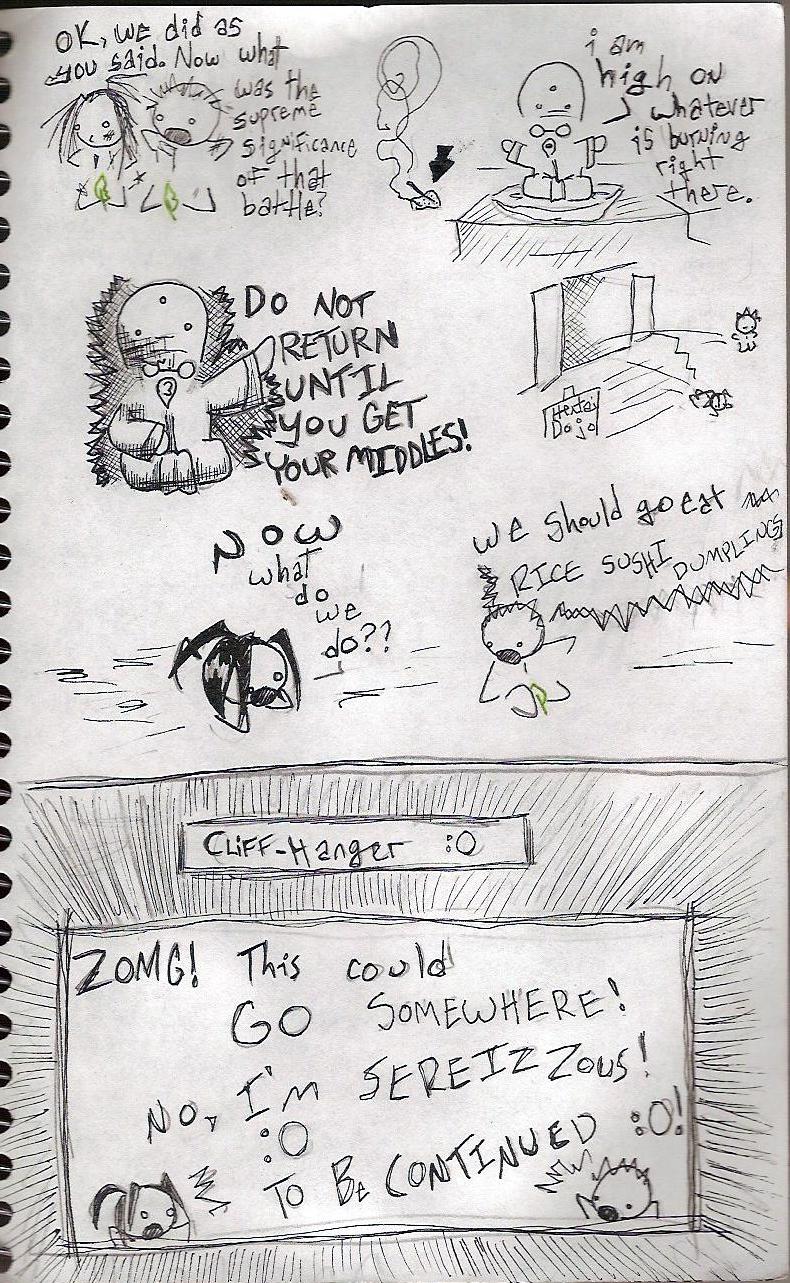 OK, we did as
you said. Now what
was the
supreme
significance
of that
battle?
i am
high on
whatever
is burning
right
there.
DO NOT
RETURN
UNTIL
YOU GET
YOUR MIDDLES!
Hentai
Dojo
NOW
what
do
we
do??
we should go eat
RICE SUSHI DUMPLINGS
CLiFF-Hanger :O
ZOMG! This could
GO SOMEWHERE!
NO, I'M SEREIZZOUS!
:O
TO Be CONTINUED :O!